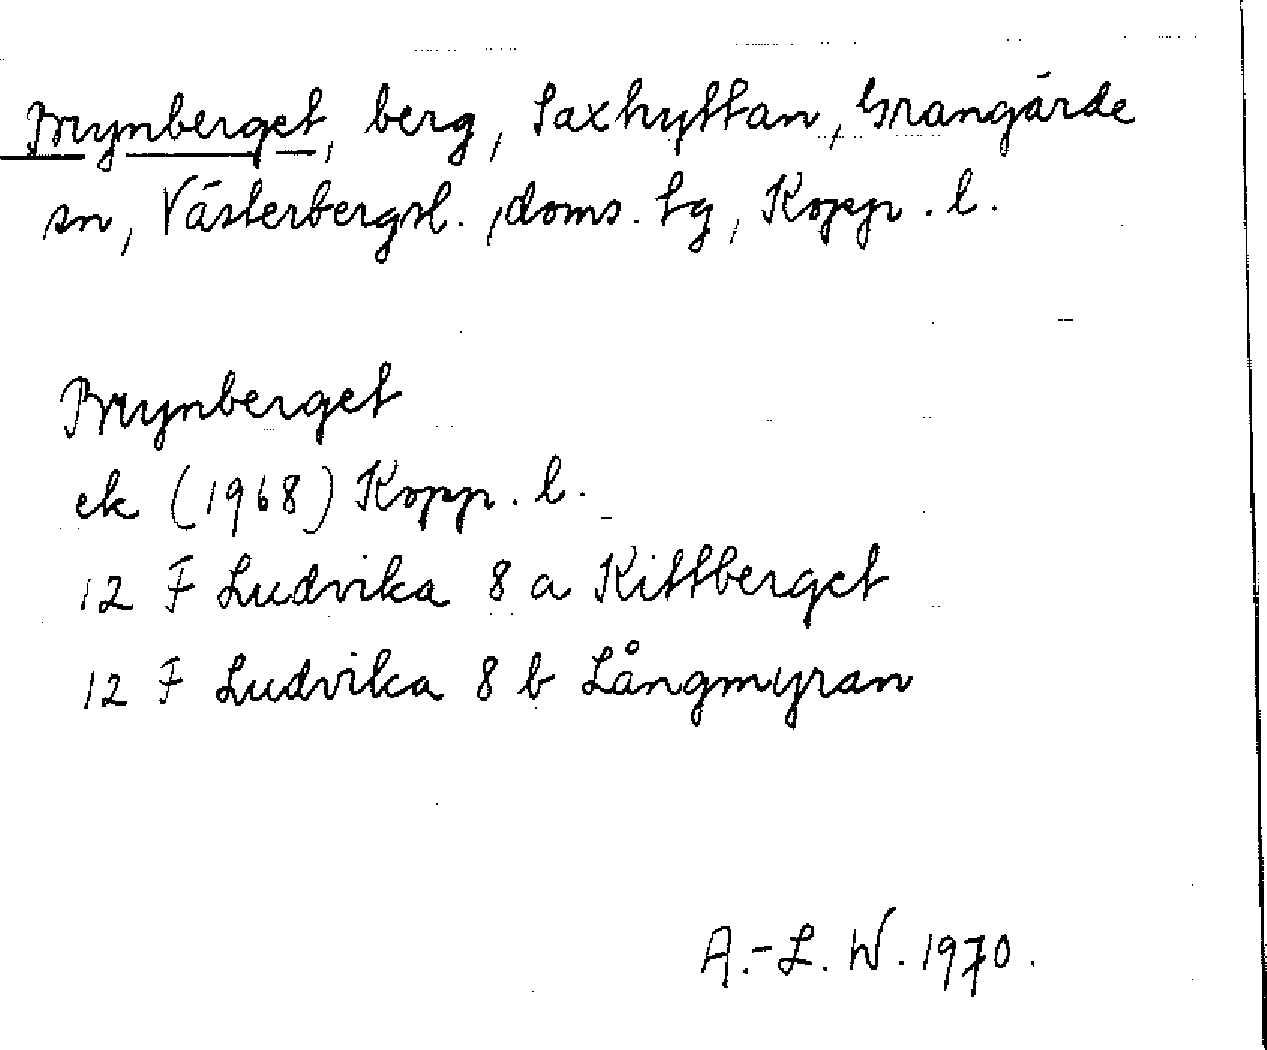 Brynberget, berg, Saxhyttan, Grangärde
sn, Västerbergsl., doms. tg, Kopp. l.
Brynberget
ek (1968) Kopp. l.
12 F Ludvika 8 a Kittberget
12 F Ludvika 8 b Långmyran
A.-L. W. 1970.